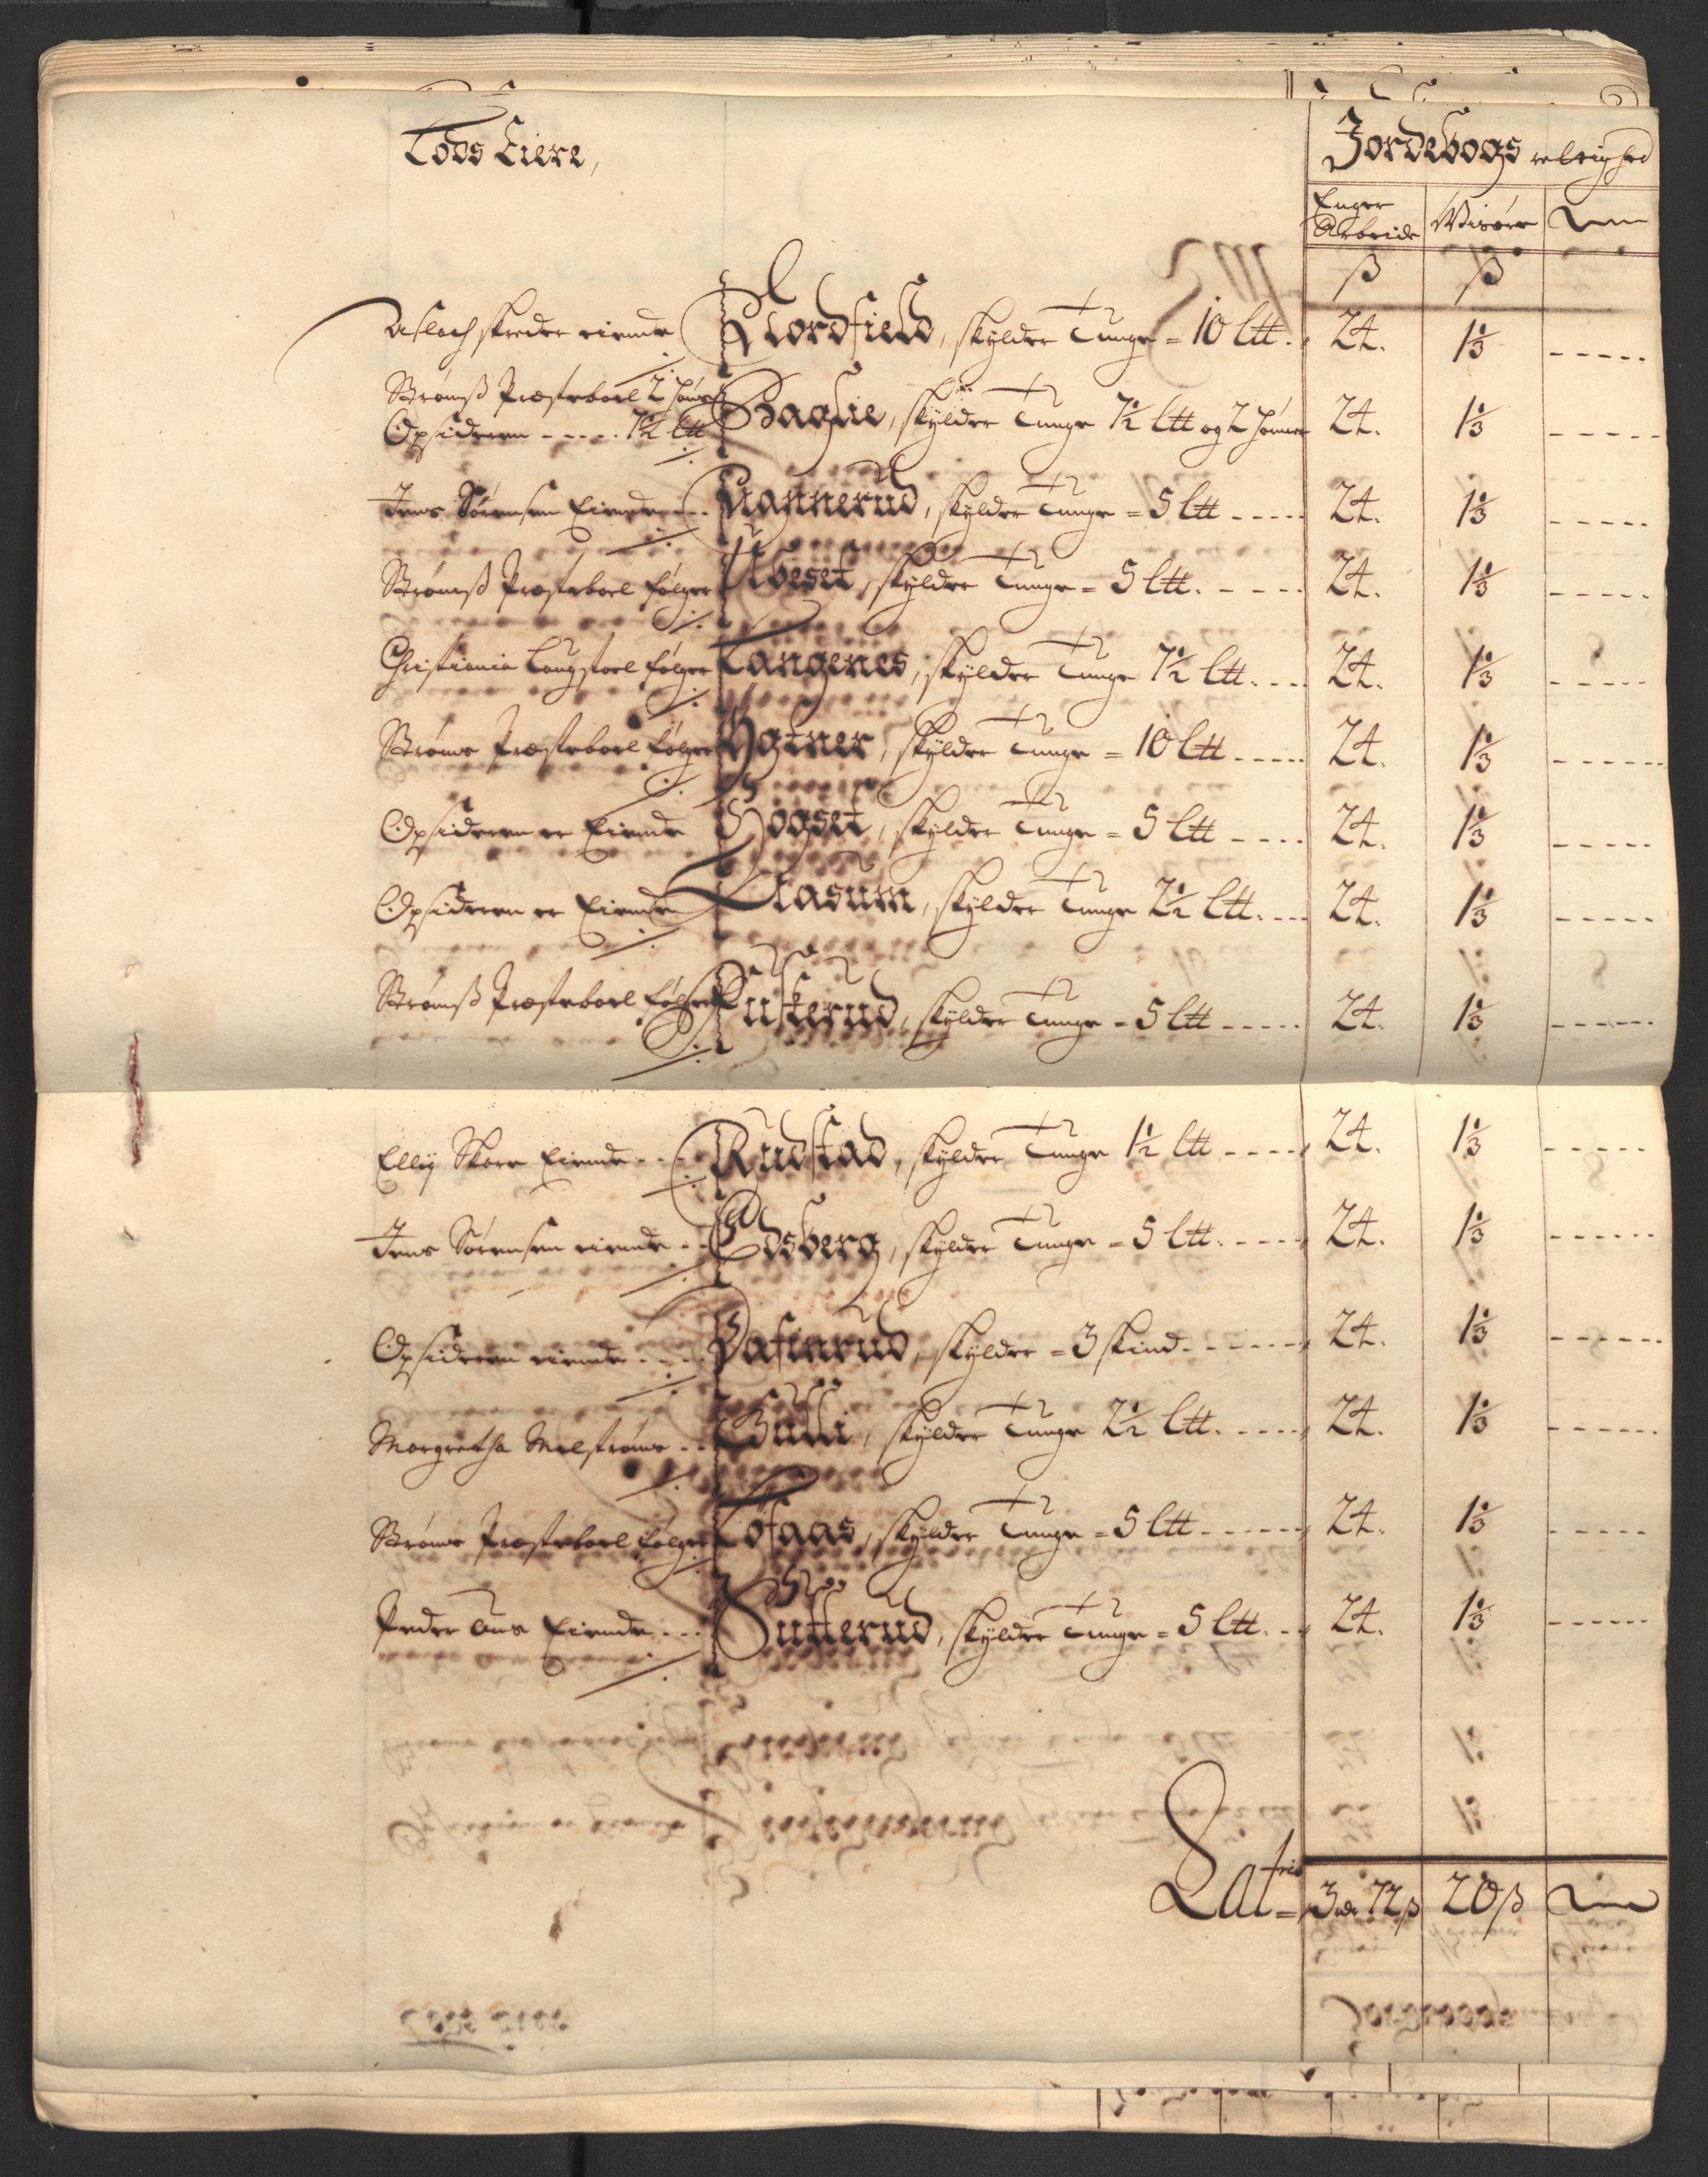 Lods Eiere,
Jordebogs rettighed
Enger
Arbeide
Wisöre
ß
ß
Aslach skreder eiende Nordfield, skylder Tunge = 10 Ltt. 24. 1⅓ -----
Strømß Præsteboel 2 Hơuer
Opsideren ----- 7½ Ltt Haglie, skylder Tunge 7½ Ltt og 2 24. 1⅓ -----
Jens Sørensen Eiende Nannerud, skylder Tunge = 5 Ltt ----- 24. 1⅓ -----
Strømß Præsteboel følger Ubeset, skylder Tunge = 5 Ltt. ---- 24. 1⅓ -----
Christiania Laugstoel følger Tangenes, skylder Tunge 7½ Ltt. --- 24. 1⅓ -----
Strøms Præsteboel følger skylder Tunge = 10 Ltt ----- 24. 1⅓ ------
Opsideren er Eiende Hogset, skylder Tunge = 5 Ltt ---- 24. 1⅓ -----
Opsideren er Eiende Aasum, skylder Tunge 2½ Ltt. --- 24. 1⅓ -----
Strømß Præsteboel følger Fuskerud, skylder Tunge = 5 Ltt ----- 24. 1⅓ ------
Ellij Skore Eiende --- Rudstad, skylder Tunge 1½ Ltt ----- 24. 1⅓ -----
Jens Sørensen eiende -- Edsberg, skylder Tunge = 5 Ltt. ----- 24. 1⅓ ------
Opsideren eiende ---- Dafinrud, skylder = 3 skind ------ 24. 1⅓ ------
Margretha Melstrøms -- Gulli, skylder Tunge 2½ Ltt. ----- 24. 1⅓ ------
Strøms Præsteboel følger Tofaas, skylder Tunge = 5 Ltt ------ 24. 1⅓ -----
Peder Eiende --- Sutterud, skylder Tunge = 5 Ltt. -- 24. 1⅓ -----
Lateris = 3 rdr 72 ß 20 ß